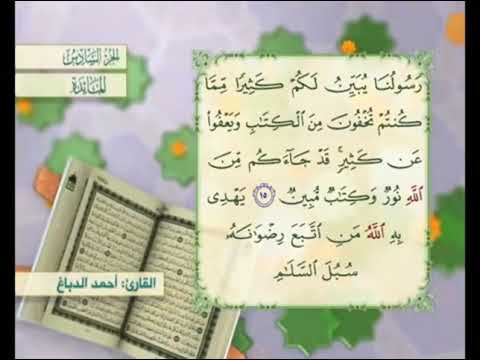 الجزء السادس
المائدة
رَسُولُنَا يُبَيِّنُ لَكُمْ كَثِيرًا مِّمَّا
كُنتُمْ تُخْفُونَ مِنَ الْكِتَابِ وَيَعْفُوا۟
عَن كَثِيرٍ ۚ قَدْ جَاءَكُم مِّنَ
اللَّهِ نُورٌ وَكِتَابٌ مُّبِينٌ ١٥ يَهْدِى
بِهِ اللَّهُ مَنِ اتَّبَعَ رِضْوَانَهُ
سُبُلَ السَّلَامِ
القارئ: أحمد الدباغ